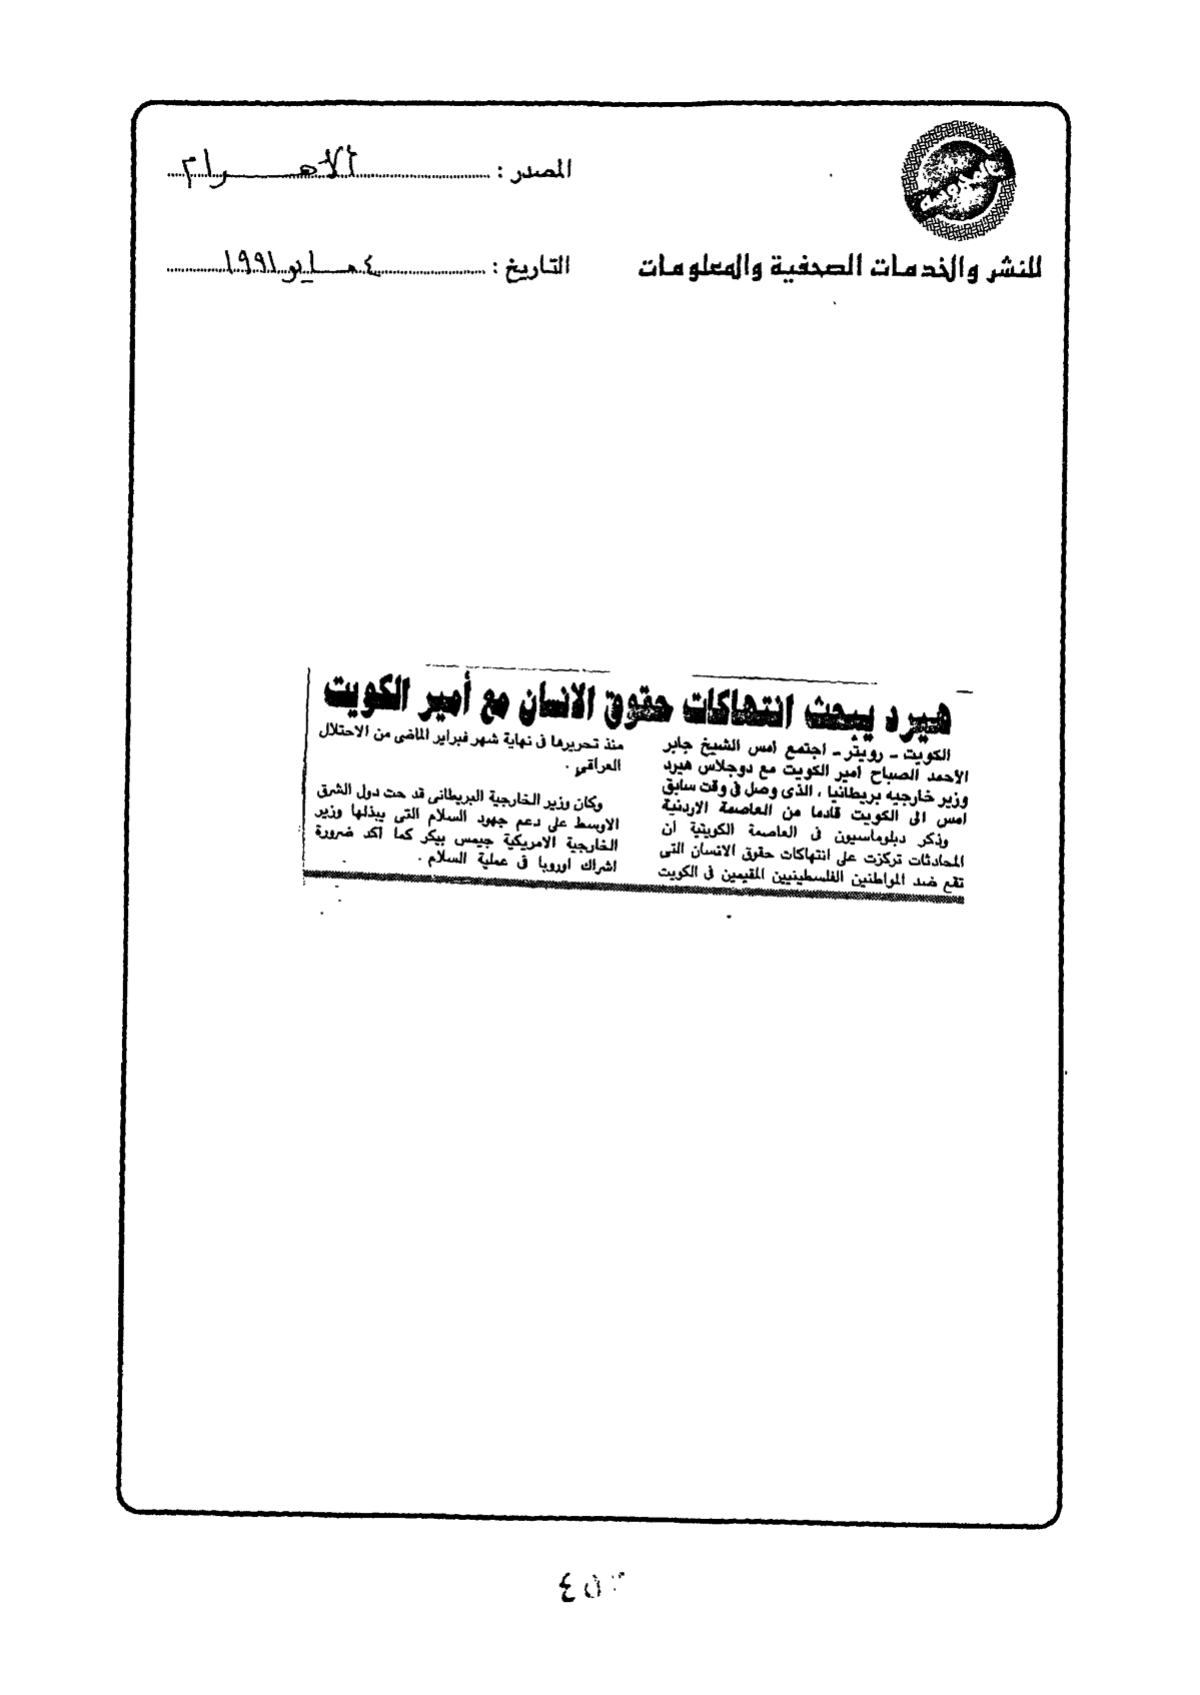 المصدر : الأهرام
للنشر والخدمات الصحفية والمعلومات
التاريخ : ٤ مايو ١٩٩١
هيرد يبحث انتهاكات حقوق الانسان مع أمير الكويت
الكويت - رويتر - اجتمع امس الشيخ جابر
الأحمد الصباح امير الكويت مع دوجلاس هيرد
وزير خارجيه بريطانيا ، الذى وصل فى وقت سابق
امس الى الكويت قادما من العاصمة الاردنية
وذكر دبلوماسيون فى العاصمة الكويتية أن
المحادثات تركزت على انتهاكات حقوق الانسان التى
تقع ضد المواطنين الفلسطينيين المقيمين فى الكويت
منذ تحريرها فى نهاية شهر فبراير الماضى من الاحتلال
العراقي .
وكان وزير الخارجية البريطانى قد حث دول الشرق
الاوسط على دعم جهود السلام التى يبذلها وزير
الخارجية الامريكية جيمس بيكر كما اكد ضرورة
اشراك اوروبا فى عملية السلام .